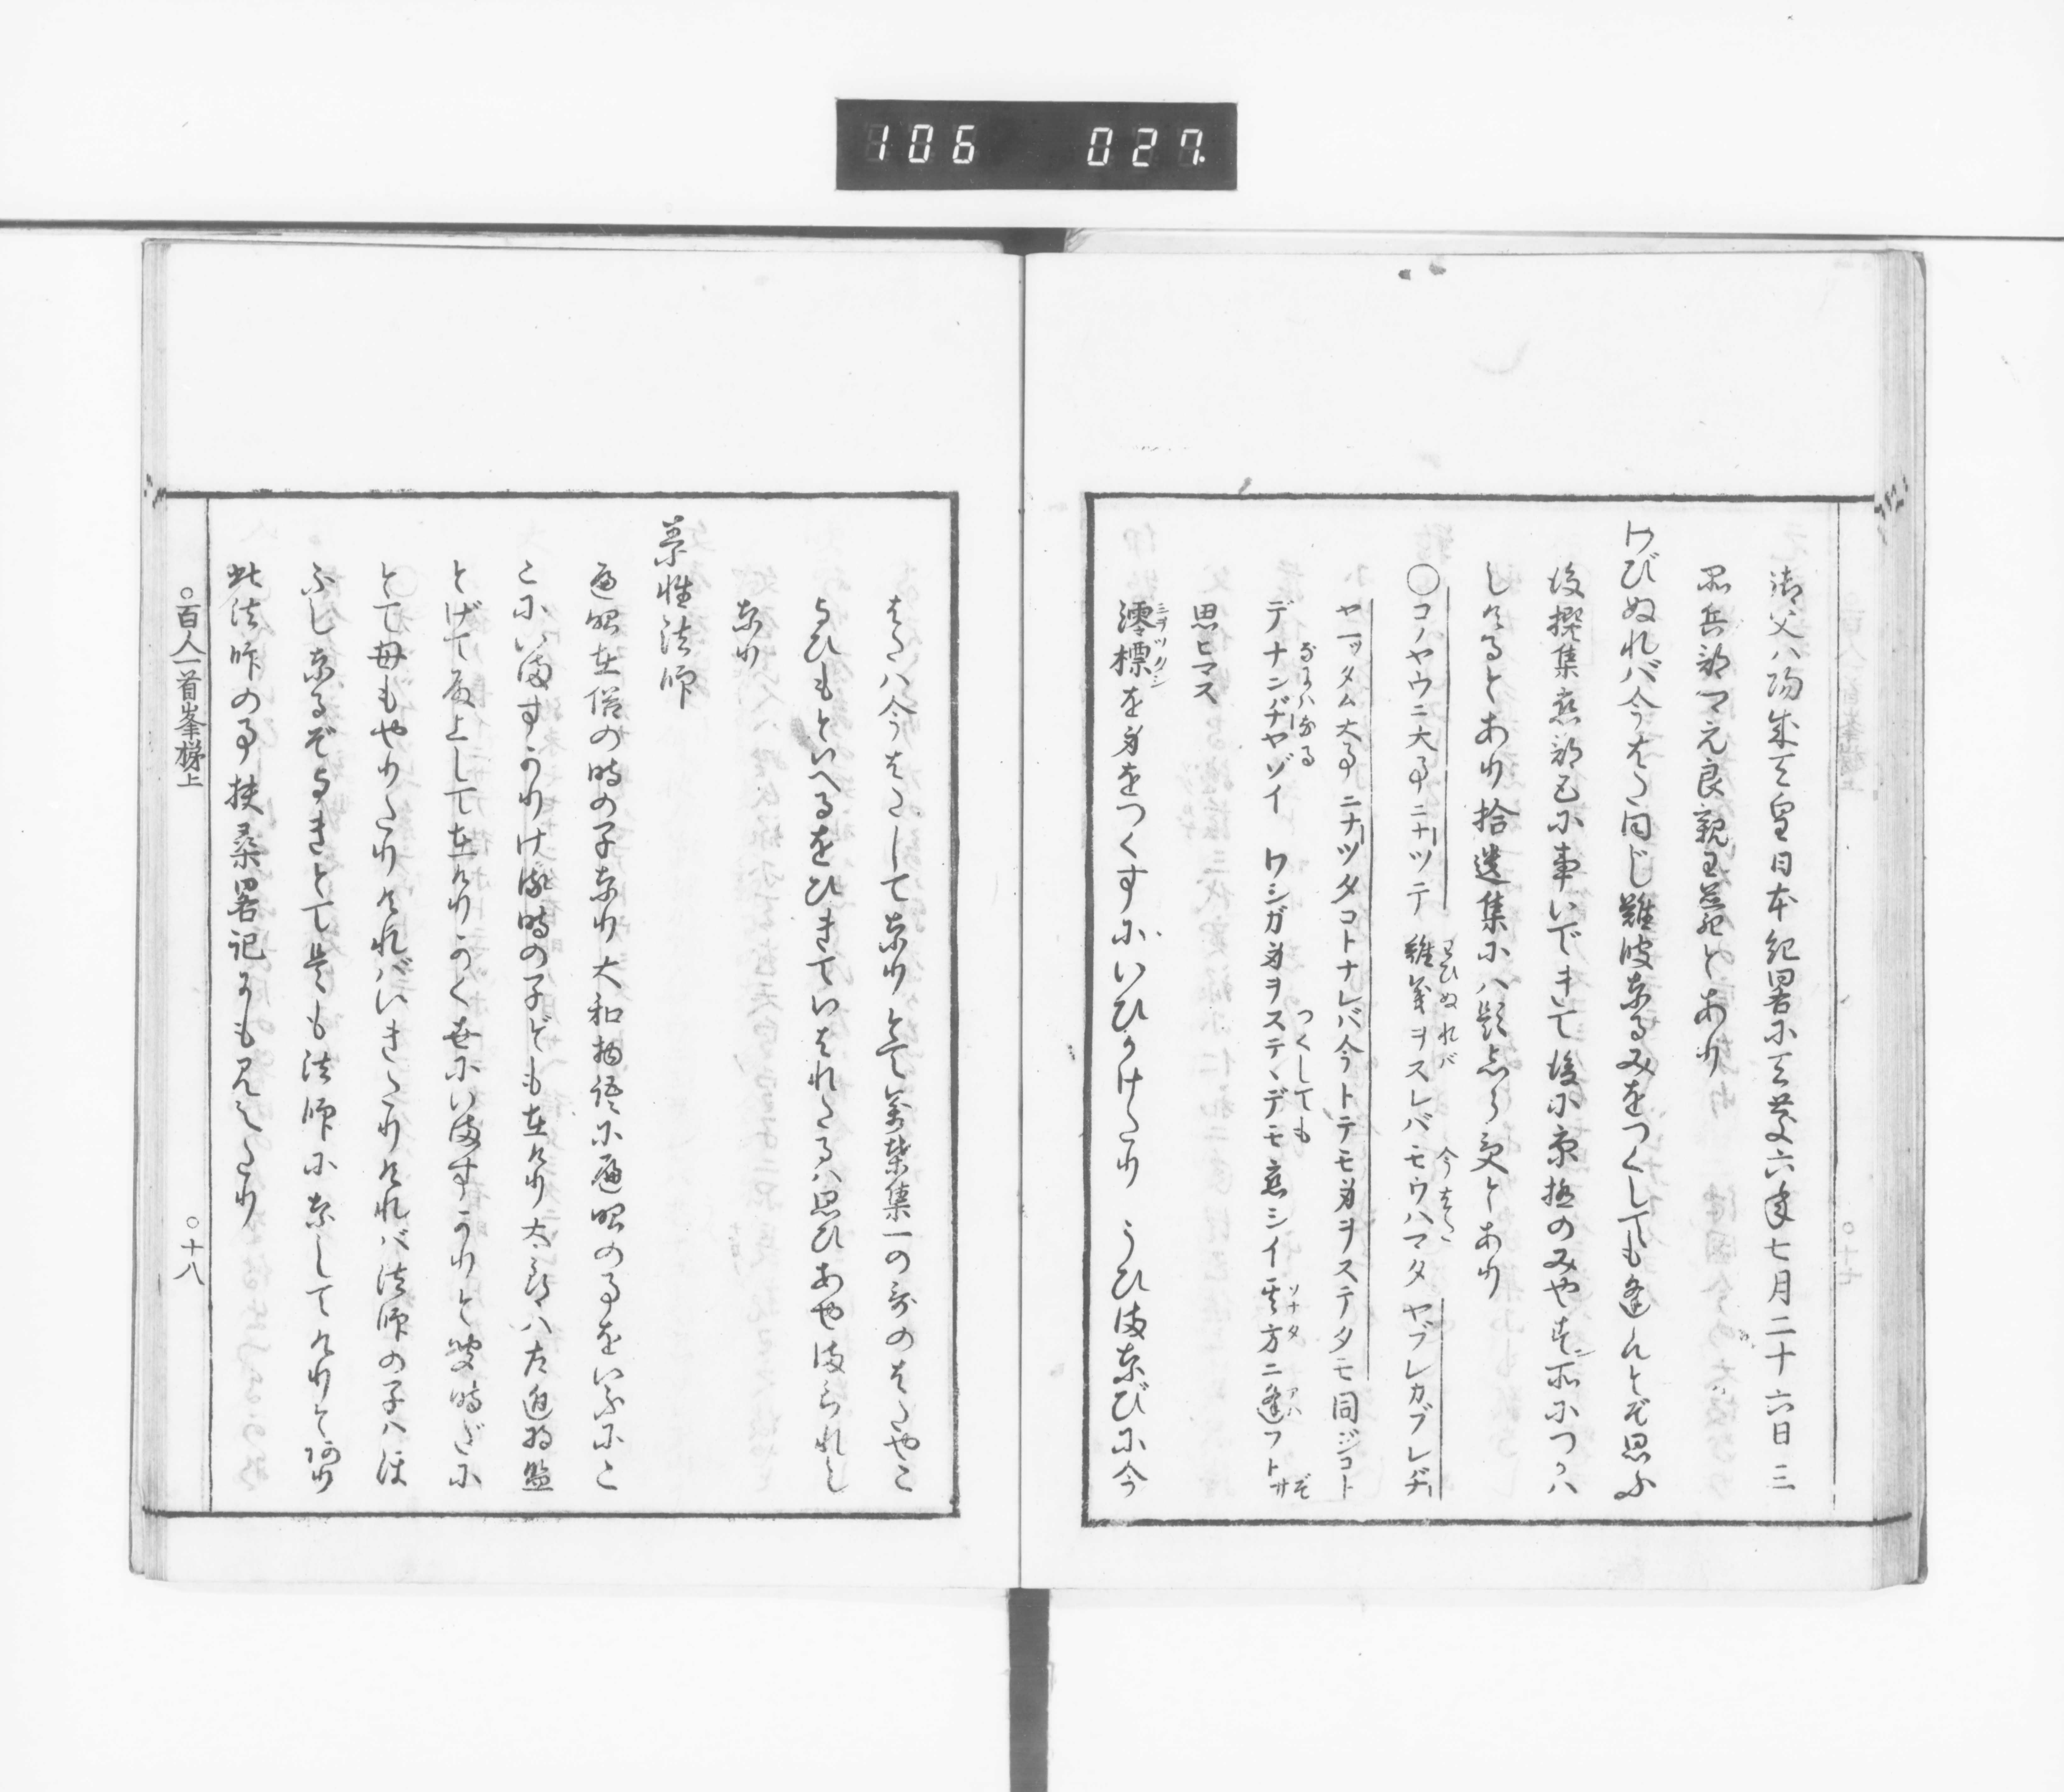 106 027
御父ハ陽成天皇日本紀畧に天慶六年七月二十六日三
品兵部卿元良親王薨とあり
わびぬれバ今はた同じ難波なるみをつくしても逢んとぞ思ふ
後撰集恋部五に事いできて後に京極のみやす所につかハ
しけるとあり拾遺集にハ題しらずとあり
○コノヤウニ大事ニナツテ難義ヲスレバモウハマタヤブレカブレヂ
わびぬれバ 今はた
ヤ一ッタム大事ニナツタコトナレバ今トテモ身ヲステタモ同ジコト
デナンヂヤゾイ ワシガ身ヲステヽデモ恋シイ其方ニ逢フトサ
なにハなる つくしても ソナタ アハ ぞ
思ヒマス
澪標を身をつくすにいひかけたり うひまなびに今
ミヲツクシ
はたハ今はたしてなり とて萬葉集一の哥のはたやこ
よひもといへるをひきていはれたるハ思ひあやまられし
なり
素性法師
遍昭在俗の時の子なり大和物語に遍昭の事をいふにこ
こにいますかりける時の子ども在けり太郎ハ左近将監
とげて殿上して在けりかく世にいますかりと聞時だに
とて母もやりたりけれバいきたりけれバ法師の子ハ法
ふしなるぞよきとて是も法師になしてけりと有り
此法師の事扶桑畧記にも見えたり
○百人一首峯梯上
○十八